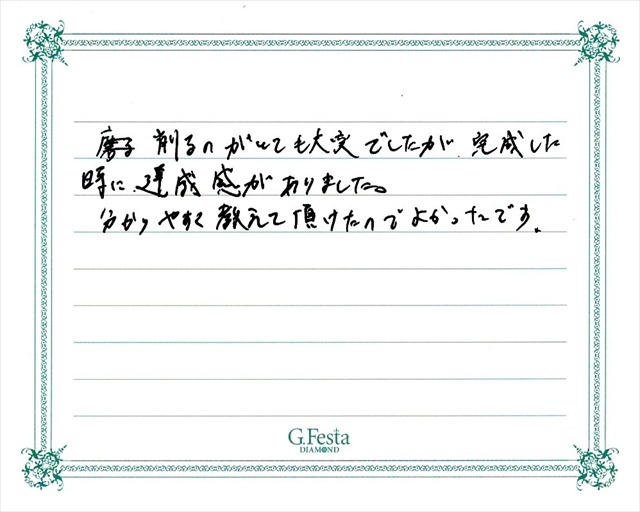 磨る 削るのがとても大変でしたが、完成した
時に、達成感がありました。
分かりやすく教えて頂けたのでよかったです。
G.Festa
DIAMOND